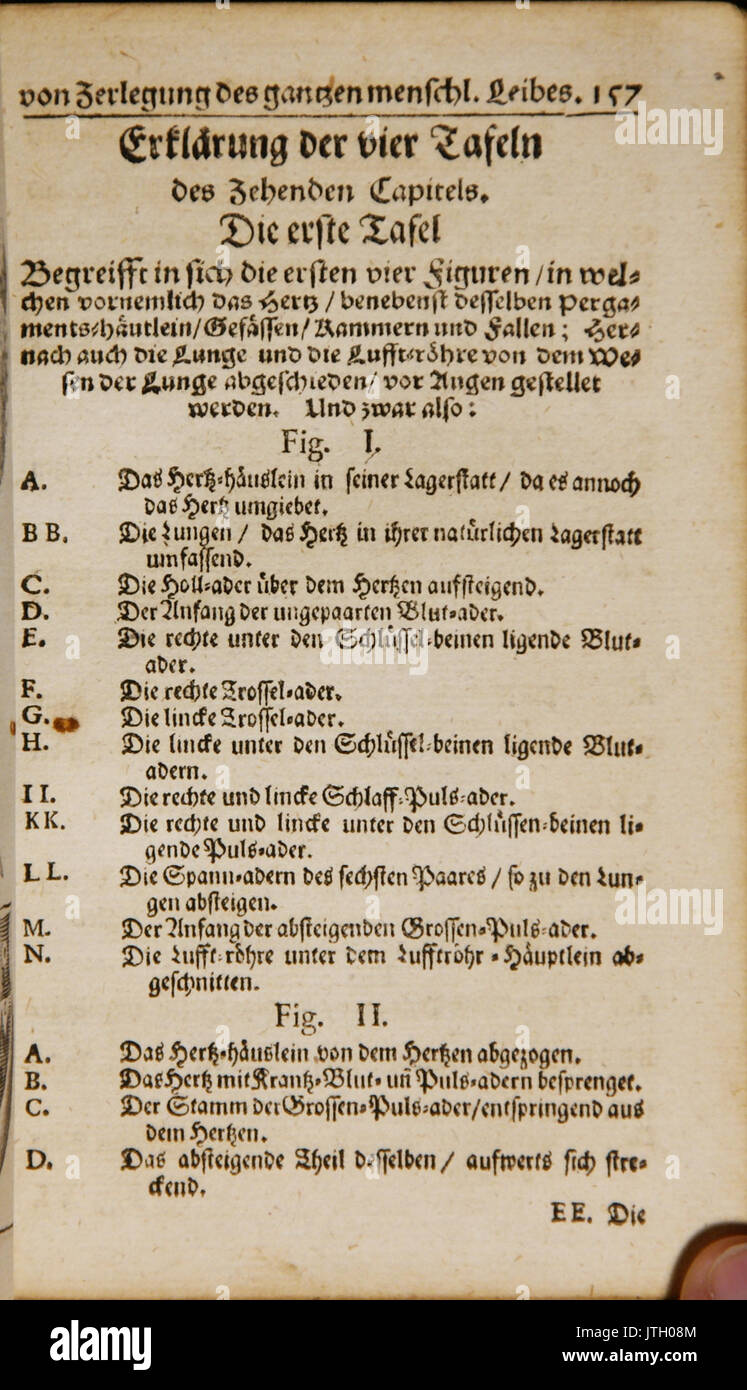 von Zerlegung des gantzen menschl. Leibes. 157
Erklärung der vier Tafeln
des Zehenden Capitels.
Die erste Tafel
Begreifft in sich die ersten vier Figuren / in wel⸗
chen vornemlich das Hertz / benebenst desselben Perga⸗
ments⸗häutlein / Gefässen / Kammern und Fallen; Her⸗
nach auch die Lunge und die Lufft⸗röhre von dem We⸗
sen der Lunge abgeschieden / vor Augen gestellet
werden. Und zwar also:
Fig. I.
A. Das Hertz⸗häuslein in seiner Lagerstatt / da es annoch
das Hertz umgiebet.
B B. Die Lungen / das Hertz in ihrer natürlichen Lagerstatt
umfassend.
C. Die Holl⸗ader über dem Hertzen aufsteigend.
D. Der Anfang der ungepaarten Blut⸗ader.
E. Die rechte unter den Schlüssel⸗beinen ligende Blut⸗
ader.
F. Die rechte Drossel⸗ader.
G. Die lincke Drossel⸗ader.
H. Die lincke unter den Schlüssel⸗beinen ligende Blut⸗
adern.
I I. Die rechte und lincke Schlaff⸗Puls⸗ader.
KK. Die rechte und lincke unter den Schlüssen⸗beinen li⸗
gende Puls⸗ader.
L L. Die Spann⸗adern des sechsten Paares / so zu den Lun⸗
gen absteigen.
M. Der Anfang der absteigenden Grossen⸗Puls⸗ader.
N. Die Lufft⸗röhre unter dem Lufftröhr⸗Häuptlein ab⸗
geschnitten.
Fig. II.
A. Das Hertz⸗häuslein von dem Hertzen abgezogen.
B. Das Hertz mit Krantz⸗Blut⸗ un̄ Puls⸗adern besprenget.
C. Der Stamm der Grossen⸗Puls⸗ader / entspringend aus
dem Hertzen.
D. Das absteigende Theil desselben / aufwerts sich stre⸗
ckend.
EE. Die
alamy
alamy
alamy
alamy stock photo
JTH08M
www.alamy.com